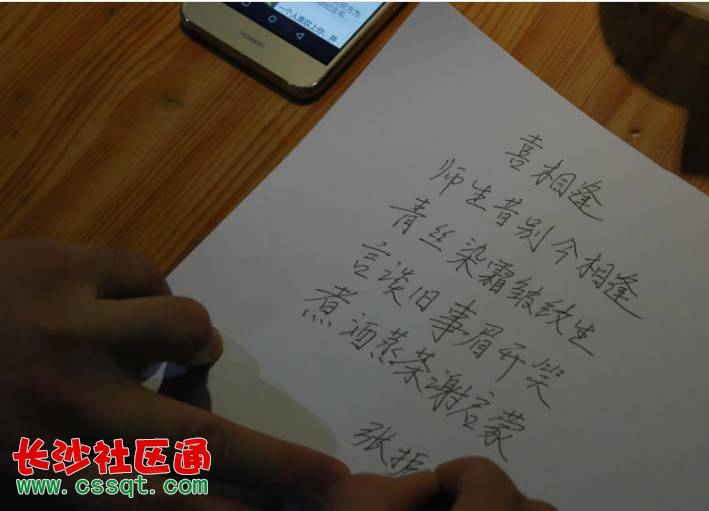 HUAWEI
一个人喜欢上你，并
喜相逢
师生昔别今相逢
青丝染霜皱纹生
言谈旧事眉开笑
煮酒蒸茶谢启蒙
张振
长沙社区通
www.cssqt.com